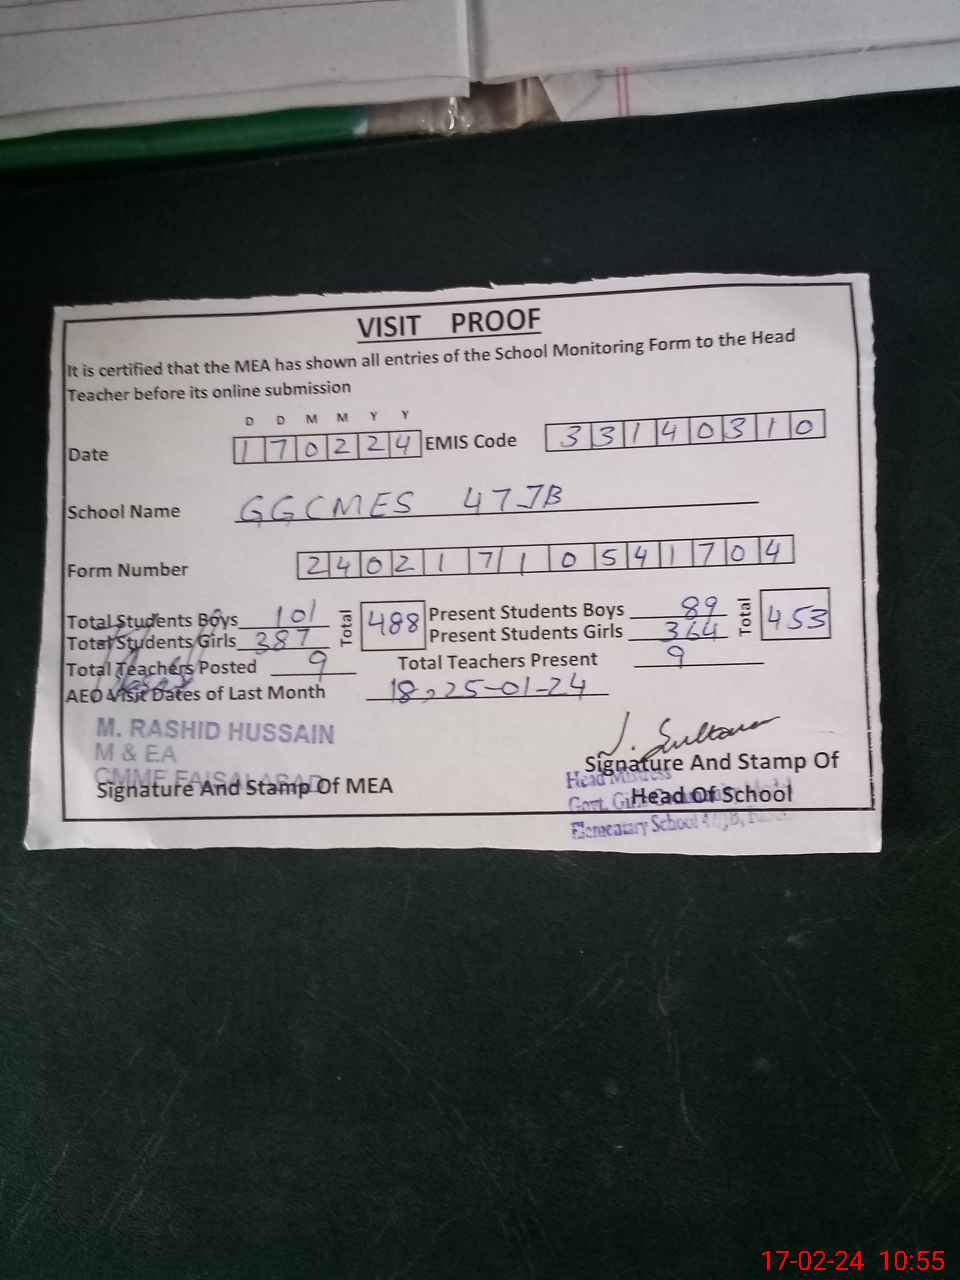 VISIT PROOF
It is certified that the MEA has shown all entries of the School Monitoring Form to the Head
Teacher before its online submission
D D M M Y Y
Date 170224 EMIS Code 33140310
School Name GGCMES 47JB
Form Number 24021710541704
Total Students Boys 101 Total 488 Present Students Boys 89 Total 453
Total Students Girls 387 Present Students Girls 364
Total Teachers Posted 9 Total Teachers Present 9
AEO Visit Dates of Last Month 18, 25-01-24
M. RASHID HUSSAIN
M & EA
CMMF FAISALABAD
Signature And Stamp Of MEA
Sultana
Signature And Stamp Of
Head Mistress
Head Of School
Govt. Girls
Elementary School 47JB,
17-02-24 10:55